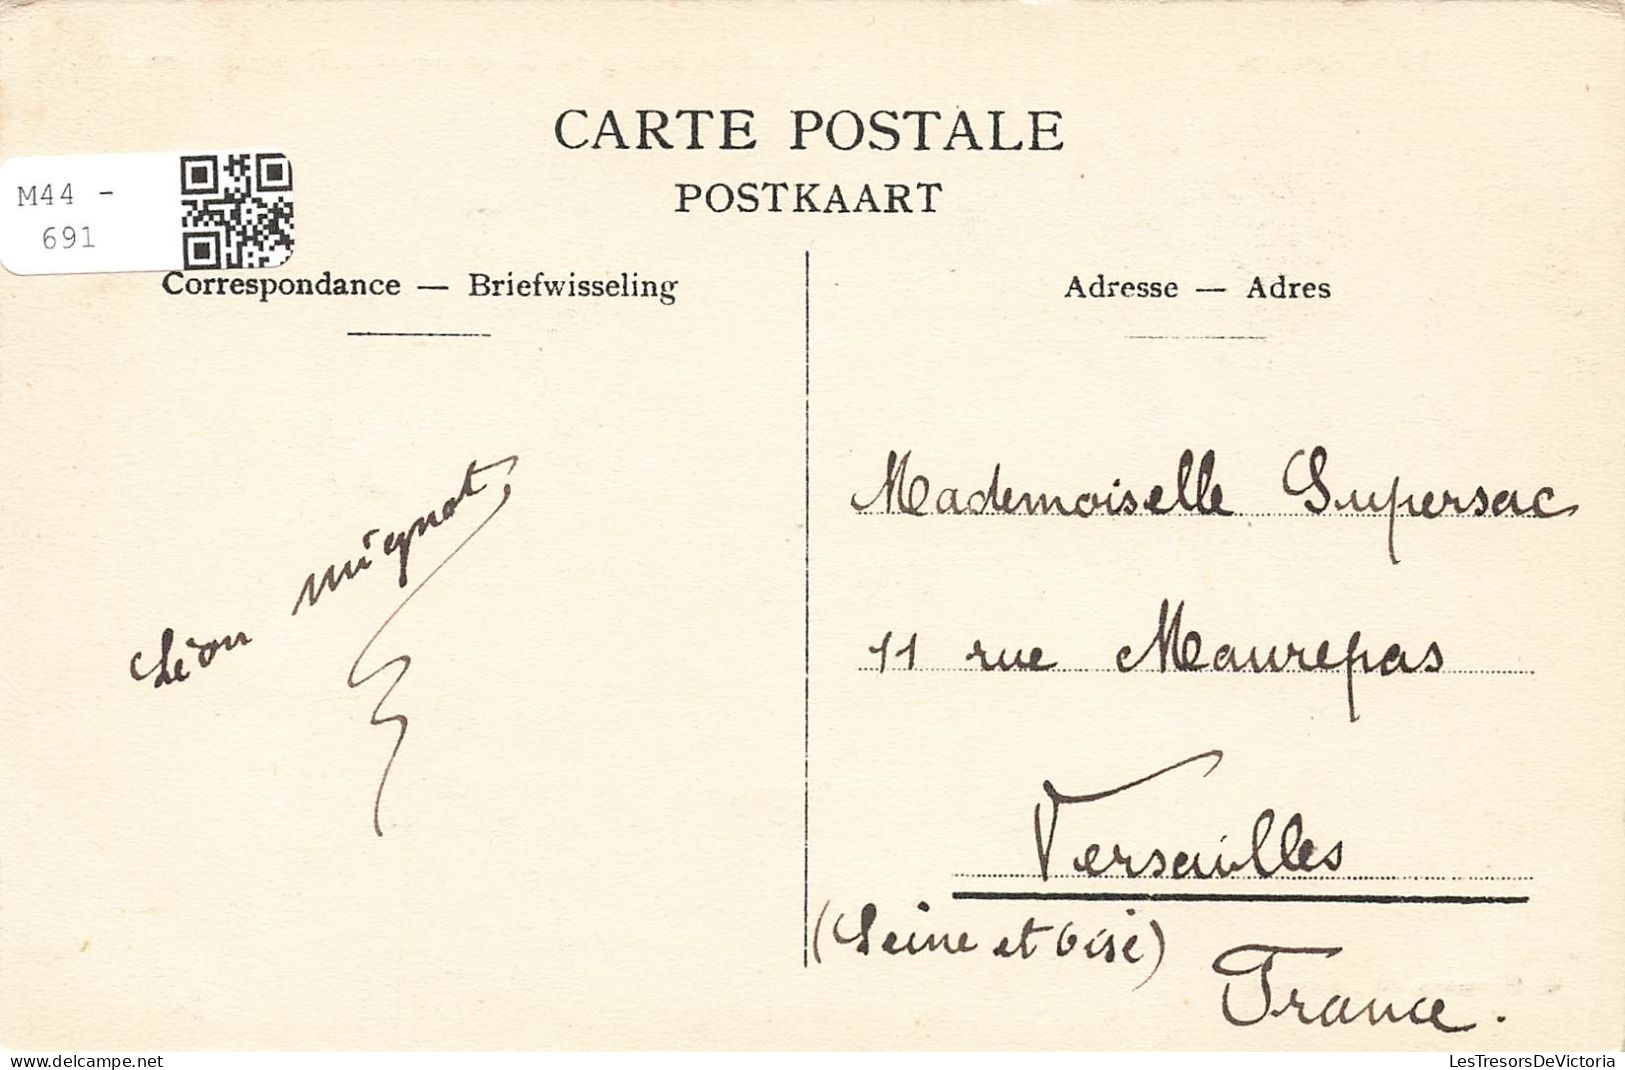 CARTE POSTALE
POSTKAART
M44 -
691
Correspondance — Briefwisseling
Adresse — Adres
Léon Mignot
Mademoiselle Supersac
11 rue Maurepas
Versailles
(Seine et Oise)
France.
delcampe.net
LesTresorsDeVictoria